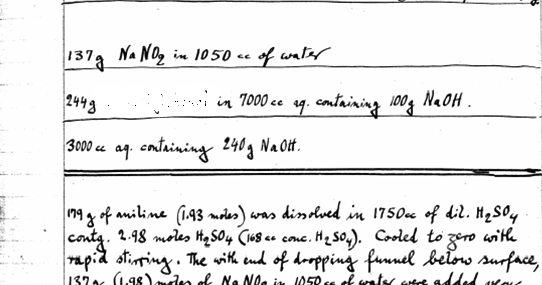 137g NaNO2 in 1050 cc of water
244g in 7000 cc aq. containing 100g NaOH.
3000 cc aq. containing 240g NaOH.
179 g of aniline (1.93 moles) was dissolved in 1750cc of dil. H2SO4
contg. 2.98 moles H2SO4 (168 cc conc. H2SO4). Cooled to zero with
rapid stirring. The with end of dropping funnel below surface,
137g (1.98) moles of NaNO2 in 1050 cc of water were added